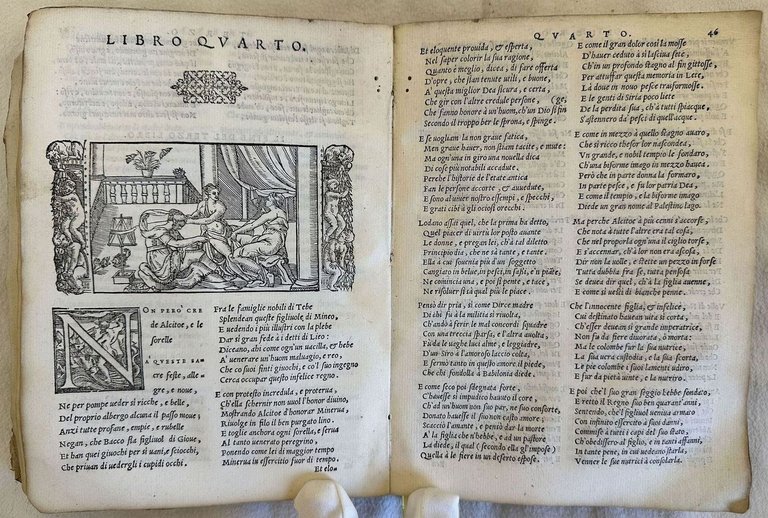 LIBRO QVARTO.
NON PERO' CRE
de Alcitoe, e le
sorelle
A' QVESTE SA=
cre feste, alle=
gre, e noue,
Ne per pompe ueder sì ricche, e belle,
Del proprio albergo alcuna il passo moue;
Anzi tutte profane, empie, e rubelle
Negan, che Bacco sia figliuol di Gioue,
Et han quei giuochi per sì uani, e sciocchi,
Che priuan di uedergli i cupidi occhi.
Fra le famiglie nobili di Tebe
Splendean queste figliuole di Mineo,
E uedendo i più illustri con la plebe
Dar sì gran fede à i detti di Lieo:
Diceano, ahi come ogn'un uacilla, & hebe
A' uenerare un huom maluagio, e reo,
Che co suoi finti giuochi, e co'l suo ingegno
Cerca occupar questo infelice regno.
E con protesto incredula, e proterua,
Ch'ella schernir non uuol l'honor diuino,
Mostrando Alcitoe d'honorar Minerua,
Riuolge in filo il ben purgato lino.
E toglie anchora ogni sorella, e serua
Al tanto uenerato peregrino,
Ponendo come lei di maggior tempo
Minerua in essercitio fuor di tempo.
Et elo=
QVARTO. 46
Et eloquente prouida, & esperta,
Nel saper colorir la sua ragione,
Quanto è meglio, dicea, di fare offerta
D'opre, che sian tenute utili, e buone,
A' questa miglior Dea sicura, e certa,
Che gir con l'altre credule persone, (ge,
Che fanno honore à un huom, ch'un Dio si fin
Secondo il troppo ber le sprona, e spinge.
E se uogliam la non graue fatica,
Men graue hauer, non stiam tacite, e mute:
Ma ogn'una in giro una nouella dica
Di cose più notabili accadute.
Perche l'historie de l'etate antica
Fan le persone accorte, & auuedute,
E sono al uiuer nostro essempi, e specchi,
E grati cibi à gli otiosi orecchi.
Lodano assai quel, che la prima ha detto,
Quel piacer di uirtù lor posto auante
Le donne, e pregan lei, ch'à tal diletto
Principio dia, che ne sà tante, e tante.
Ella à cui souenia più d'un soggetto
Cangiato in belue, in pesci, in sassi, e'n piāte,
Ne comincia, e non segue, e poi ne dice,
Ne risoluer si sà qual più le piace.
Pensò dir pria, sì come Dirce madre
Di chi fu à la militia sì riuolta,
Ch'andò à ferir le mal concordi squadre
Con una treccia sparsa, e l'altra auolta,
Fù da le ueghe luci alme, e leggiadre,
D'un Siro à l'amoroso laccio colta,
E fermò tanto in questo amore il piede,
Che chi fondolla à Babilonia diede.
E come seco poi sdegnata forte,
C'hauesse sì impudico hauuto il core,
Ch'ad un huom non suo par, ne suo consorte,
Donato hauesse il suo non casto amore;
Scacciò l'amante, e pensò dar la morte
A' la figlia che n'hebbe, e ad un pastore
La diede, il qual (secondo ella gl'impose)
Quella à le fiere in un deserto espose.
E come il gran dolor così la mosse
D'hauer ceduto à sì lasciua sete,
Ch'in un profondo stagno al fin gittosse,
Per attuffar questa memoria in Lete,
Là doue in nouo pesce trasformosse.
E le genti di Siria poco liete
De la perdita sua, ch'à tutti spiacque,
S'astennero da pesci di quell'acque.
E come in mezzo à quello stagno auaro,
Che sì ricco thesor lor nascondea,
Vn grande, e nobil tempio le fondaro,
Ch'una biforme imago in mezzo hauea.
Però che in parte donna la formaro,
In parte pesce, e fu lor patria Dea,
E come il tempio, e la biforme imago
Diede un gran nome al Palestino lago.
Ma perche Alcitoe à più cenni s'accorse,
Che nota à tutte l'altre era tal cosa,
Che nel proporla ogn'una il ciglio torse,
E s'accennar, ch'à lor non era ascosa,
Dir non la uolle, e stette un pezzo in forse
Tutta dubbia fra se, tutta pensosa
Se deuea dir quel, ch'à la figlia auenne,
E come si uestì di bianche penne.
Che l'innocente figlia, e infelice,
Cui destinato hauean uita sì certa,
Ch'esser deuean sì grande imperatrice,
Non fu da fiere diuorata, ò morta:
Ma le colombe fur la sua nutrice,
La sua uera custodia, e la sua scorta,
Le pie colombe i suoi lamenti udiro,
E fur da pietà uinte, e la nutriro.
E poi che'l suo gran seggio hebbe fondato,
E retto il Regno suo ben quarant'anni,
Sentendo, che'l figliuol ueniua armato
Con infinito essercito à suoi danni,
Commise à tutti i capi del suo stato,
Ch'obedissero al figlio, e in tanti affanni,
In tante pene, in cui uedeano starla,
Venner le sue nutrici à consolarla.